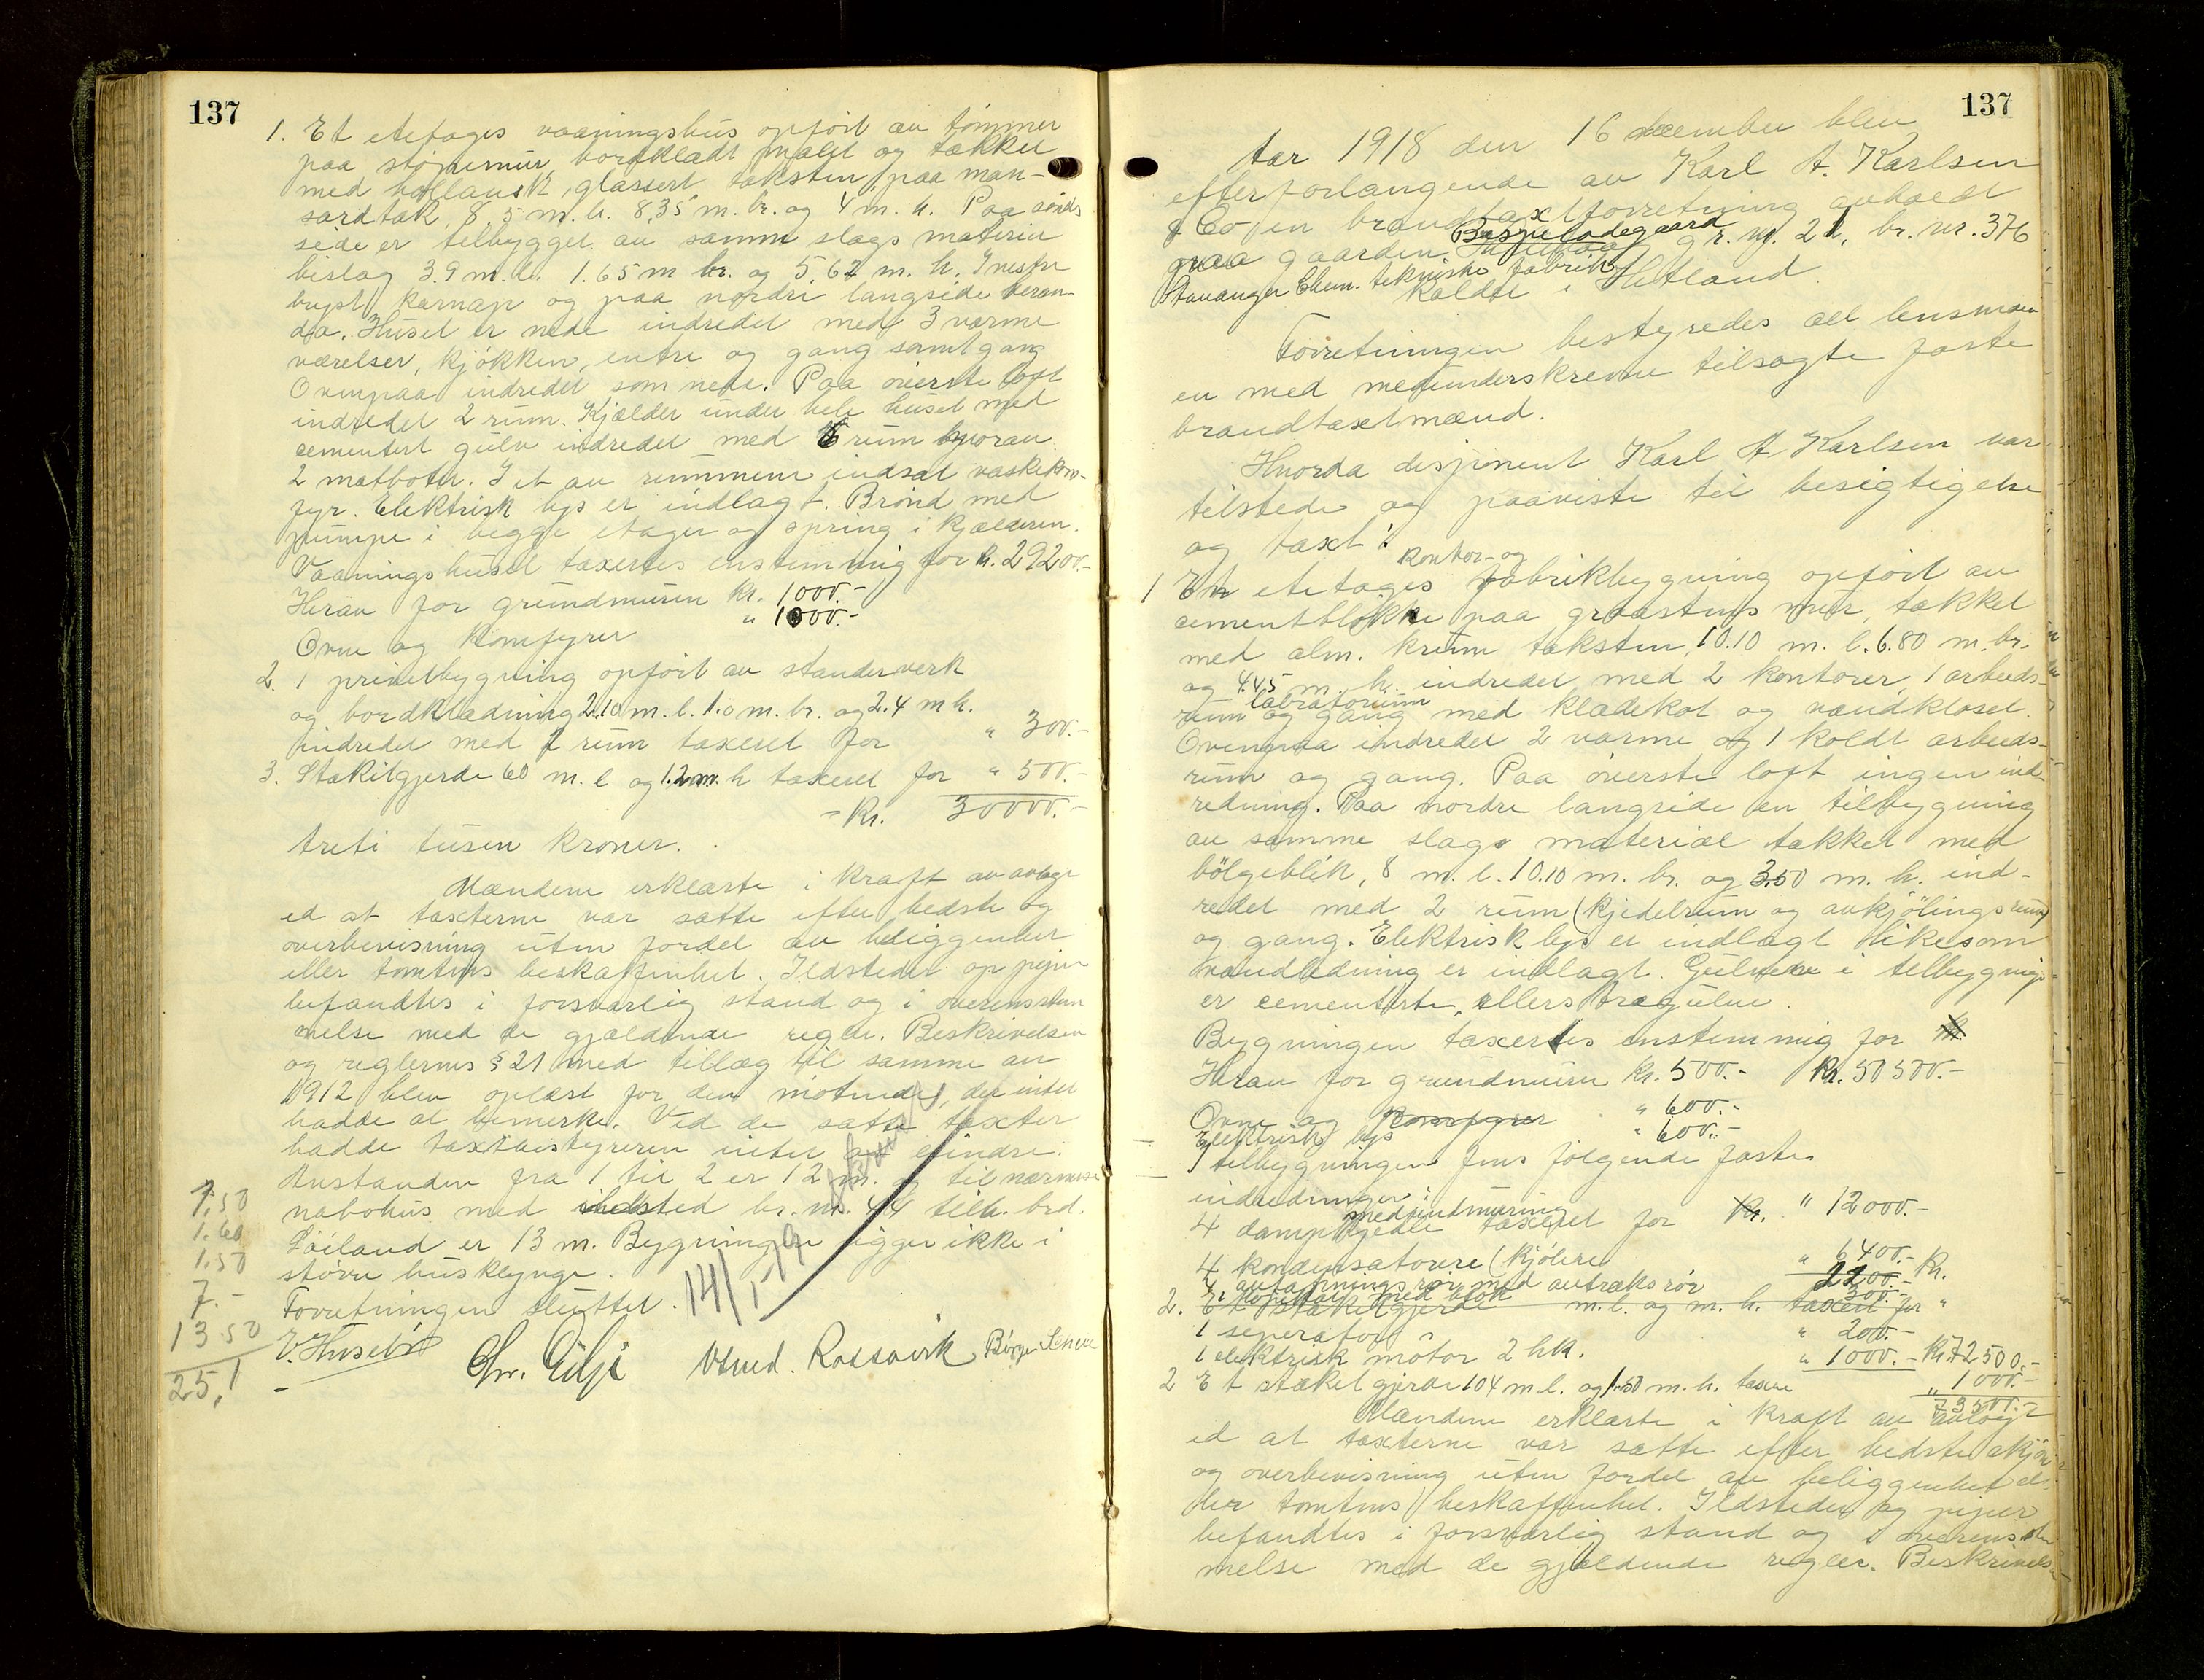 137
1. Et etetages vaaningshus opført av tømmer
paa støpemur, bordklædt malet og tækket
med hollansk, glassert taksten, paa man-
sardtak, 8,5 m. l. 8,35 m. br. og 4 m. h. Paa
side er tilbygget av samme slags materia
bislag 3.9 m. l. 1.65 m br. og 5,62 m. h. I vestre
karnap og paa nordre langside veran-
da. Huset er nede indredet med 3 varme
værelser, kjøkken, entre og gang samt gang
Ovenpaa indredet som nede. Paa øverste loft
indredet 2 rum. Kjælder under hele huset med
cementert gulv indredet med 6 rum hvorav
2 matboder. I et av rummene indsat vaskekom-
fyr. Elektrisk lys er indlagt. Brønd med
pumpe i begge etager og spring i kjælderen.
Vaaningshuset taxertes enstemmig for kr. 29200.-
Herav for grundmuren kr. 1000.-
Ovne og komfyrer " 1000.-
2. 1 privetbygning opført av stenderverk
og bordklædning 2.10 m. l. 1.0 m. br. og 2.4 m h.
indredet med 1 rum taxeret for " 300.-
3. Stakitgjerde 60 m. l og 1.2 m. h taxeret for " 500.-
= Kr. 30000.-
treti tusen kroner.
Mændene erklærte i kraft av avlagt
ed at taxterne var satte efter bedste og
overbevisning uten fordel av beliggenhet
eller tomtens beskaffenhet. Ildsteder og piper
befandtes i forsvarlig stand og i overensstem
melse med de gjældende regler. Beskrivelsen
og reglernes § 21 med tillæg til samme av
1912 blev oplæst for den møtende, der intet
hadde at bemerke. Ved de satte taxter
hadde taxtbestyreren intet at erindre.
Avstanden fra 1 til 2 er 12 m. og til nærmeste
nabohus med ildsted br. nr. 44 tilh. brd.
Løiland er 13 m. Bygningen ligger ikke i
større husklynge.
Forretningen sluttet.
14/1-19
V. Husebø Chr. Gilje Rossavik Børge
1,50
1.60
1.50
7.-
13.50
25,1
137
Aar 1918 den 16 december blev
efter forlangende av Karl A. Karlsen
& Co en brandtaxtforretning avholdt
paa gaarden Bespeladegaard gr. nr. 21, br. nr. 376
Stavanger Chem. tekniske fabrik
kaldet i Hetland.
Forretningen bestyredes av lensmann
en med medunderskrevne tilsagte faste
brandtaxtmænd.
Hvorda disponent Karl A Karlsen var
tilstede og paaviste til besigtigelse
og taxt:
kontor- og
1 En etetages fabrikbygning opført av
cementblokke paa graastens mur, tækket
med alm. krum taksten, 10.10 m. l. 6.80 m. br.
og 4.45 m. h. indredet med 2 kontorer, 1 arbeids-
labratorium
rum og gang med klædekot og vandkloset.
Ovenpaa indredet 2 varme og 1 koldt arbeids-
rum og gang. Paa øverste loft ingen ind-
redning. Paa nordre langside en tilbygning
av samme slags material tækket med
bølgeblik, 8 m. l. 10.10 m. br. og 3.50 m. h. ind-
redet med 2 rum (kjedelrum og avkjølingsrum)
og gang. Elektrisk lys er indlagt likesom
vandledning er indlagt. Gulvene i tilbygnings
er cementerte, ellers trægulve.
Bygningen taxertes enstemmig for
Herav for grundmuren kr. 500.- Kr. 50500.-
Ovne og komfyrer " 600.-
Elektrisk lys " 600.-
I tilbygningen fins følgende faste
indredninger:
med indmuring
4 dampkjedle taxeret for Kr. " 12000.-
4 kondensatorere (kjølere " 6400.- Kr.
4 avtapningsrør med avtræksrør 2200.-
med 300.-
2. Et stakitgjerde m. l. og m. h. taxert for "
1 seperator " 200.-
1 elektrisk motor 2 hk. " 1000.- Kr. 72500.-
2 Et stakitgjerde 104 m l. og 1.50 m. h. taxere " 1000.-
73500.-
Mændene erklærte i kraft av avlagt
ed at taxterne var satte efter bedste skjøn
og overbevisning uten fordel av beliggenhet el-
ler tomtens beskaffenhet. Ildsteder og piper
befandtes i forsvarlig stand og i overensstem
melse med de gjældende regler. Beskrivels